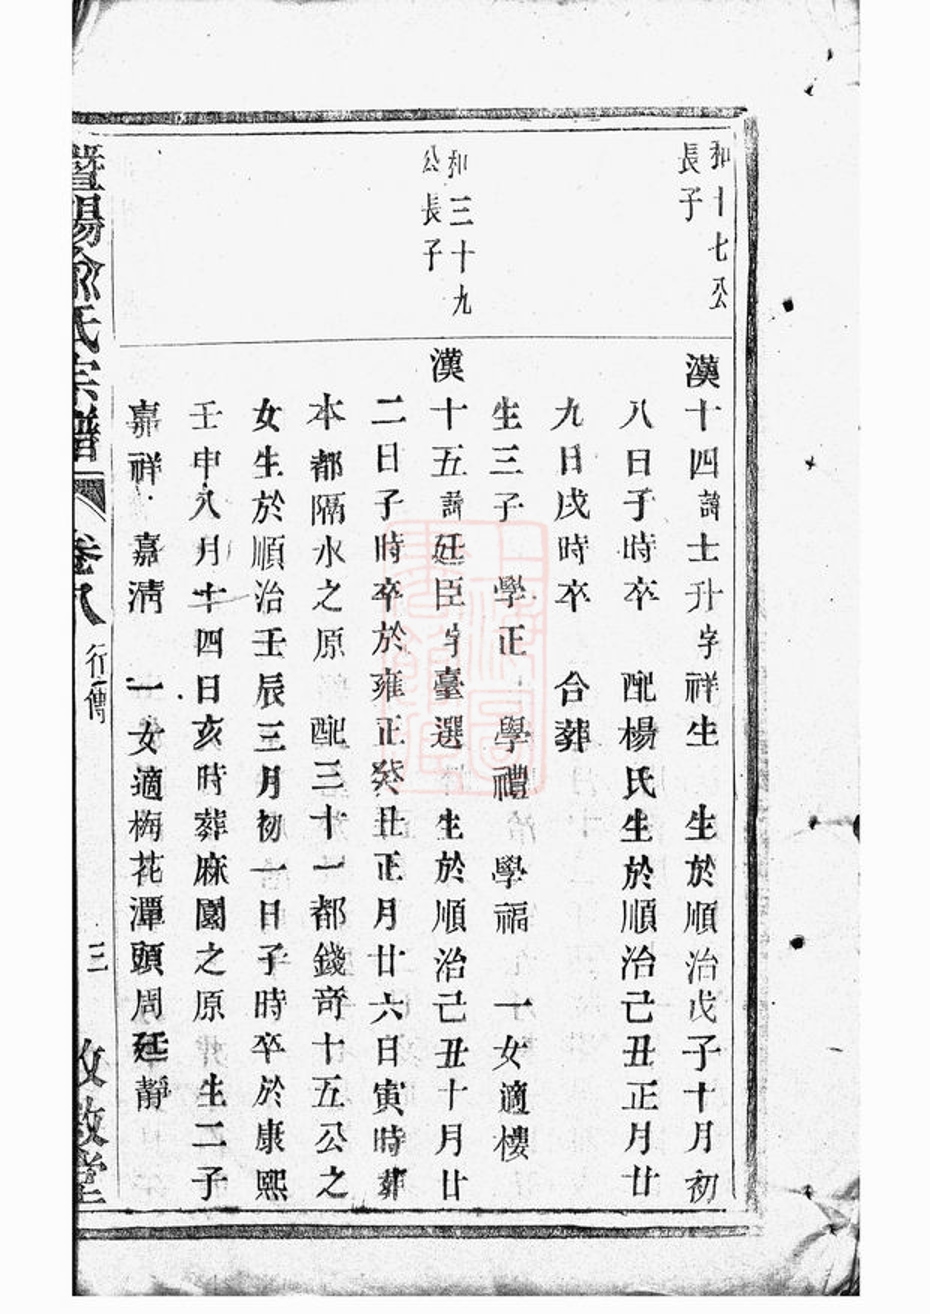 和十七公
長子
漢十四諱士升字祥生　生於順治戊子十月初
八日子時卒　配楊氏生於順治己丑正月廿
九日戌時卒　合葬
生三子　學正　學禮　學福　一女適樓
和三十九
公長子
漢十五諱廷臣字臺選　生於順治己丑十月廿
二日子時卒於雍正癸丑正月廿六日寅時葬
本都隔水之原　配三十一都錢奇十五公之
女生於順治壬辰三月初一日子時卒於康熙
壬申八月十四日亥時葬麻園之原　生二子
嘉祥　嘉清　一女適梅花潭頭周廷靜
暨陽俞氏宗譜　卷八　行傳　三　敦堂